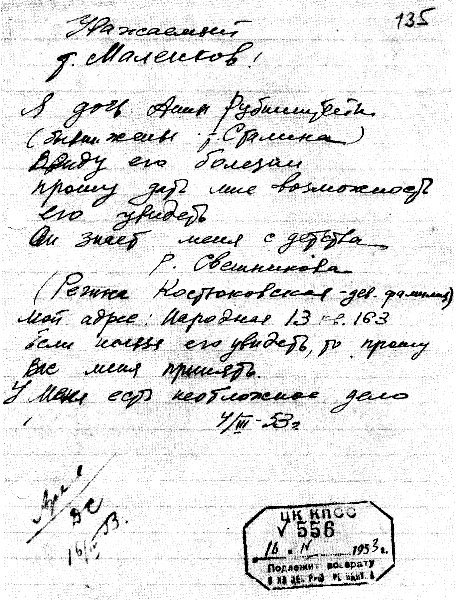 135
Уважаемый
т. Маленков!
Я дочь Анны Рубинштейн
(бывшей жены т. Сталина)
Ввиду его болезни
прошу дать мне возможность
его увидеть
Он знает меня с детства
Р. Свешникова
(Регина Костюковская – дев. фамилия)
Мой адрес: Народная 13 кв. 163
Если нельзя его увидеть, то прошу
Вас меня принять.
У Меня есть неотложное дело
4/III-53 г
Архив
16/IV 53.
ЦК КПСС
556
16 IV 1953 г.
Подлежит возврату